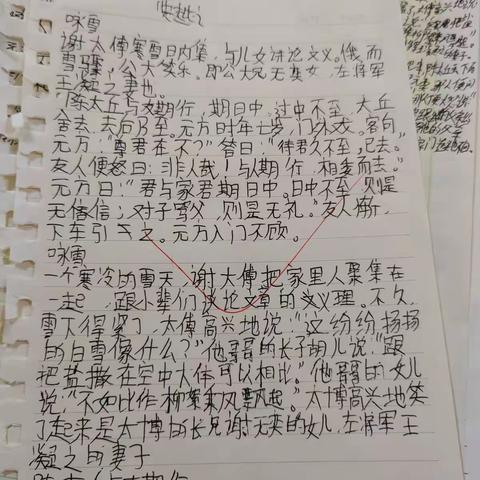 咏雪
谢太傅寒雪日内集,与儿女讲论文义。俄而
雪骤,公大笑乐。即公大兄无奕女,左将军
王凝之妻也。
陈太丘与友期行,期日中。过中不至,太丘
舍去,去后乃至。元方时年七岁,门外戏。客问
元方:“尊君在不?”答曰:“待君久不至,已去。”
友人便怒曰:“非人哉!与期行,相委而去。”
元方曰:“君与家君期日中。日中不至,则是
无信;对子骂父,则是无礼。”友人惭,
下车引之。元方入门不顾。
咏雪
一个寒冷的雪天,谢太傅把家里人聚集在
一起,跟小辈们谈论文章的义理。不久,
雪下得紧了,太傅高兴地说:“这纷纷扬扬
的白雪像什么?”他哥哥的长子胡儿说:“跟
把盐撒在空中大体可以相比。”他哥哥的女儿
说:“不如比作柳絮乘风飘起。”太傅高兴地笑
了起来是太傅的长兄谢无奕的女儿,左将军王
凝之的妻子